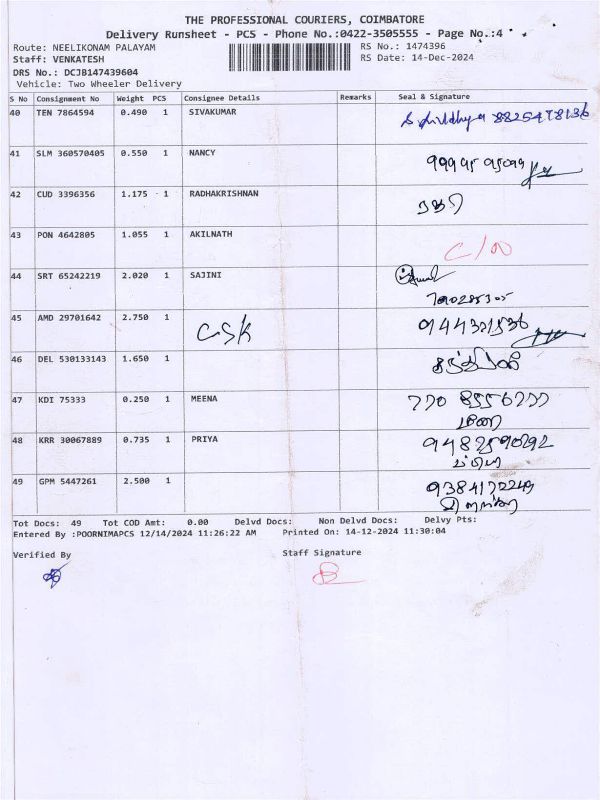 THE PROFESSIONAL COURIERS, COIMBATORE
Delivery Runsheet - PCS - Phone No.:0422-3505555 - Page No.:4
Route: NEELIKONAM PALAYAM
RS No.: 1474396
Staff: VENKATESH
RS Date: 14-Dec-2024
DRS No.: DCJB147439604
Vehicle: Two Wheeler Delivery
S No Consignment No Weight PCS Consignee Details Remarks Seal & Signature
40 TEN 7864594 0.490 1 SIVAKUMAR
41 SLM 360570405 0.550 1 NANCY
42 CUD 3396356 1.175 1 RADHAKRISHNAN ரகு
43 PON 4642805 1.055 1 AKILNATH
44 SRT 65242219 2.020 1 SAJINI
45 AMD 29701642 2.750 1 CSK
46 DEL 530133143 1.650 1
47 KDI 75333 0.250 1 MEENA
மீனா
48 KRR 30067889 0.735 1 PRIYA
49 GPM 5447261 2.500 1 9384172249
Tot Docs: 49 Tot COD Amt: 0.00 Delvd Docs: Non Delvd Docs: Delvy Pts:
Entered By :POORNIMAPCS 12/14/2024 11:26:22 AM Printed On: 14-12-2024 11:30:04
Verified By Staff Signature